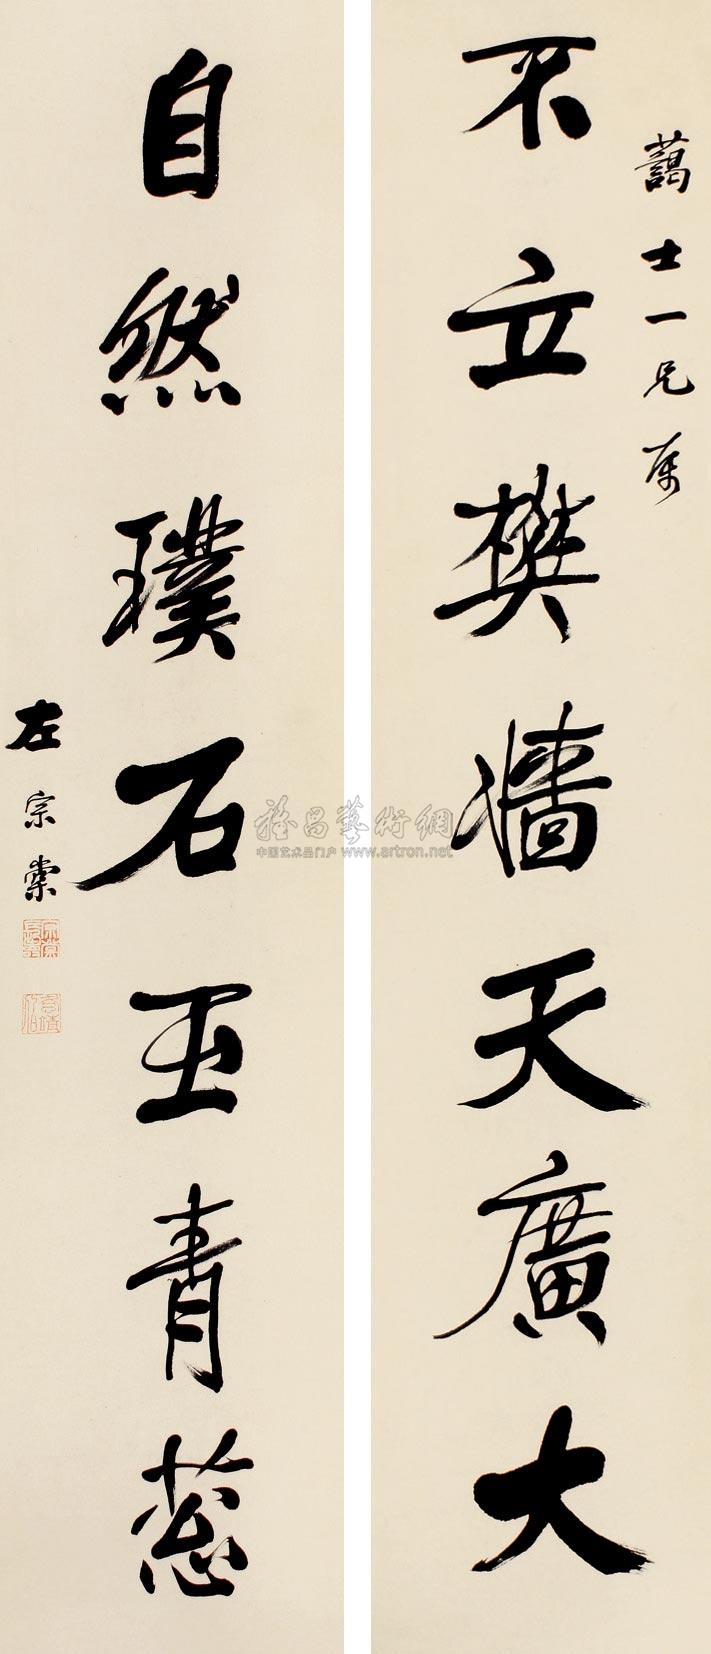 藹士一兄屬
不立樊墙天廣大
自然璞石玉青葱
左宗棠
雅昌藝術網
中国艺术品门户 www.artron.net